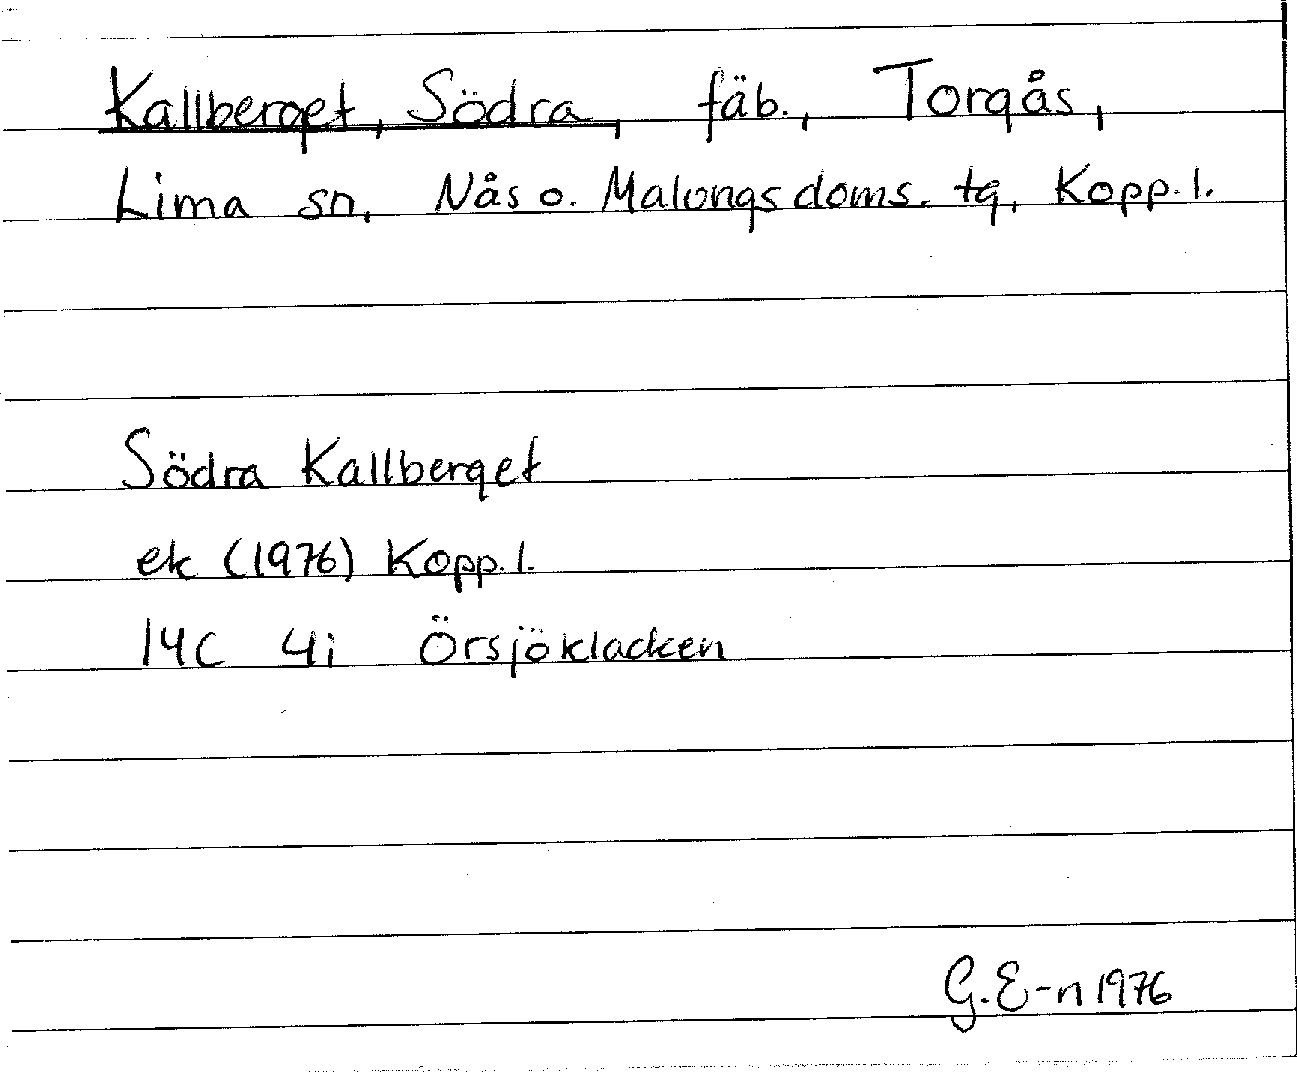 Kallberget, Södra, fäb., Torgås,
Lima sn, Nås o. Malungs doms. tg, Kopp. l.
Södra Kallberget
ek (1976) Kopp. l.
14C 4i Örsjöklacken
G. E-n 1976